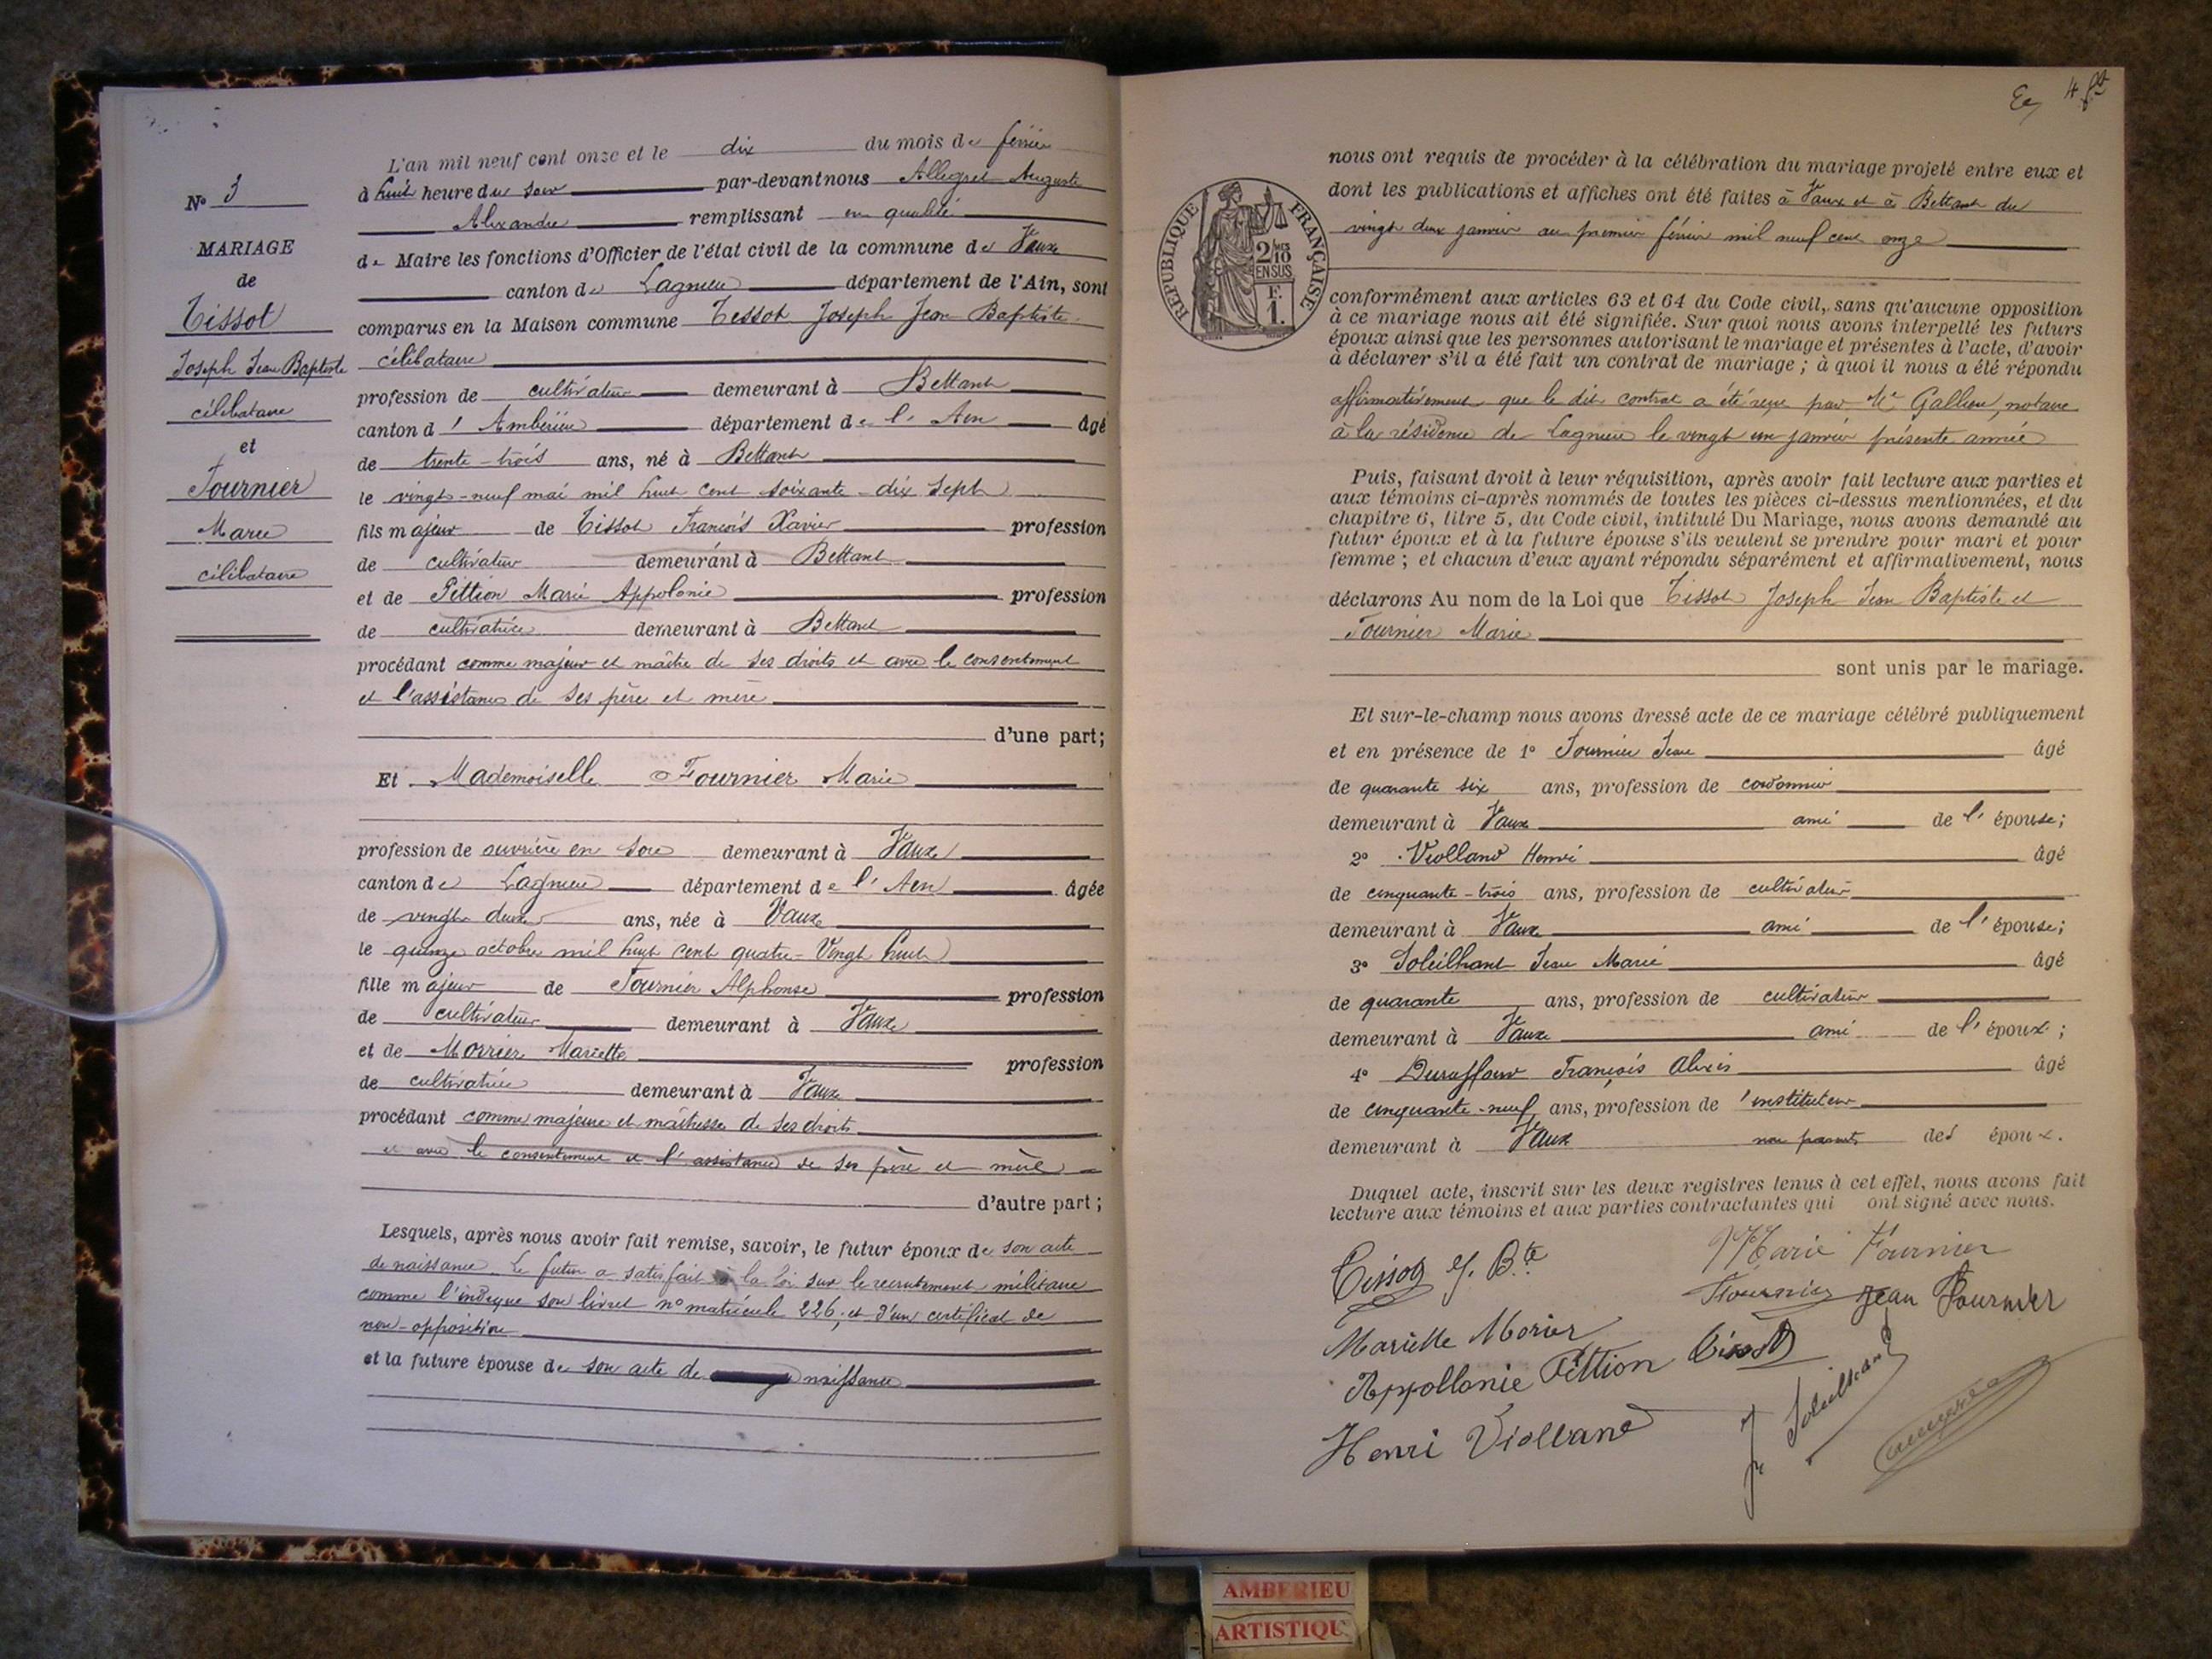 L'an mil neuf cent onze et le dix du mois de février
à huit heure du soir par-devant nous Allegret Auguste
Alexandre remplissant en qualité
de Maire les fonctions d'Officier de l'état civil de la commune de Vaux
canton de Lagnieu département de l'Ain, sont
comparus en la Maison commune Tissot Joseph Jean Baptiste
célibataire
profession de cultivateur demeurant à Bettant
canton d'Ambérieu département de l'Ain âgé
de trente-trois ans, né à Bettant
le vingt-neuf mai mil huit cent soixante-dix sept
fils majeur de Tissot François Xavier profession
de cultivateur demeurant à Bettant
et de Pittion Marie Appolonie profession
de cultivatrice demeurant à Bettant
procédant comme majeur et maître de ses droits et avec le consentement
et l'assistance de ses père et mère
d'une part;
Et Mademoiselle Fournier Marie
profession de ouvrière en soie demeurant à Vaux
canton de Lagnieu département de l'Ain âgée
de vingt deux ans, née à Vaux
le quinze octobre mil huit cent quatre-Vingt huit
fille majeur de Fournier Alphonse profession
de cultivateur demeurant à Vaux
et de Morrier Mariette profession
de cultivatrice demeurant à Vaux
procédant comme majeure et maîtresse de ses droits
et avec le consentement et l'assistance de ses père et mère
d'autre part;
Lesquels, après nous avoir fait remise, savoir, le futur époux de son acte
de naissance. Le futur a satisfait à la loi sur le recrutement militaire
comme l'indique son livret n° matricule 226, et d'un certificat de
non-opposition
et la future épouse de son acte de naissance
N° 3
MARIAGE
de
Tissot
Joseph Jean Baptiste
célibataire
et
Fournier
Marie
célibataire
4
RÉPUBLIQUE FRANÇAISE
2/10
EN SUS
F.
1.
nous ont requis de procéder à la célébration du mariage projeté entre eux et
dont les publications et affiches ont été faites à Vaux et à Bettant du
vingt deux janvier au premier février mil neuf cent onze
conformément aux articles 63 et 64 du Code civil, sans qu'aucune opposition
à ce mariage nous ait été signifiée. Sur quoi nous avons interpellé les futurs
époux ainsi que les personnes autorisant le mariage et présentes à l'acte, d'avoir
à déclarer s'il a été fait un contrat de mariage; à quoi il nous a été répondu
affirmativement que le dit contrat a été reçu par Me Gallien, notaire
à la résidence de Lagnieu le vingt un janvier présente année
Puis, faisant droit à leur réquisition, après avoir fait lecture aux parties et
aux témoins ci-après nommés de toutes les pièces ci-dessus mentionnées, et du
chapitre 6, titre 5, du Code civil, intitulé Du Mariage, nous avons demandé au
futur époux et à la future épouse s'ils veulent se prendre pour mari et pour
femme; et chacun d'eux ayant répondu séparément et affirmativement, nous
déclarons Au nom de la Loi que Tissot Joseph Jean Baptiste et
Fournier Marie
sont unis par le mariage.
Et sur-le-champ nous avons dressé acte de ce mariage célébré publiquement
et en présence de 1° Fournier Jean âgé
de quarante six ans, profession de cordonnier
demeurant à Vaux ami de l'épouse;
2° Violland Henri âgé
de cinquante-trois ans, profession de cultivateur
demeurant à Vaux ami de l'épouse;
3° Soleilhant Jean Marie âgé
de quarante ans, profession de cultivateur
demeurant à Vaux ami de l'époux;
4° Duraffour François Alexis âgé
de cinquante-neuf ans, profession de instituteur
demeurant à Vaux non parents des époux.
Duquel acte, inscrit sur les deux registres tenus à cet effet, nous avons fait
lecture aux témoins et aux parties contractantes qui ont signé avec nous.
Tissot J. Bte Marie Fournier
Fournier Jean Fournier
Mariette Morier
Appollonie Pittion Tissot
Henri Violland J Soleilhant
AMBERIEU
ARTISTIQU